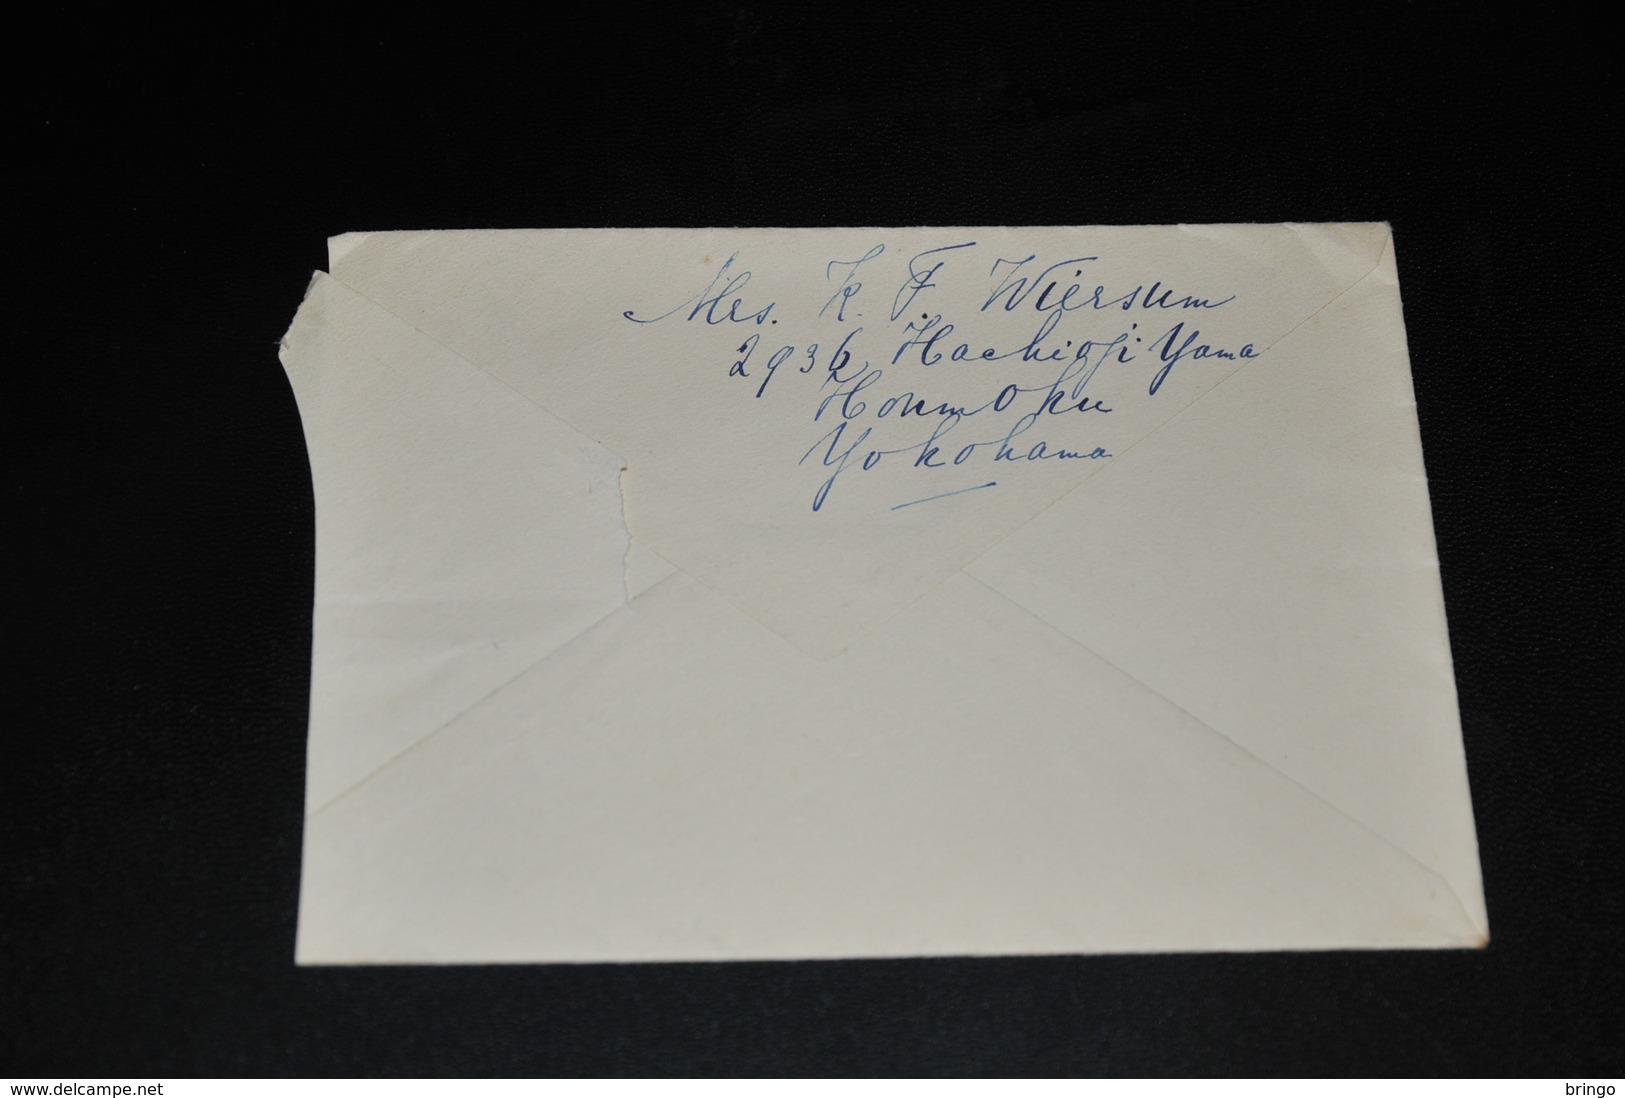 Mrs. K. F. Wiersum
2936 Hachioji Yama
Honmoku
Yokohama
www.delcampe.net
bringo